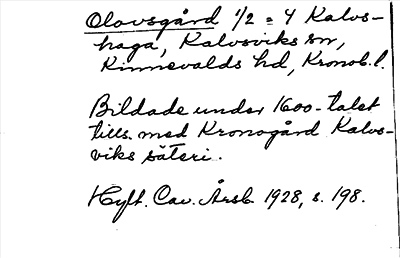 Olovsgård 1/2 = 4 Kalvs-
haga, Kalvsviks sn,
Kinnevalds hd, Kronob. l.
Bildade under 1600-talet
tills. med Kronogård Kalvs-
viks säteri.
Hylt. Cav. Årsb. 1928, s. 198.